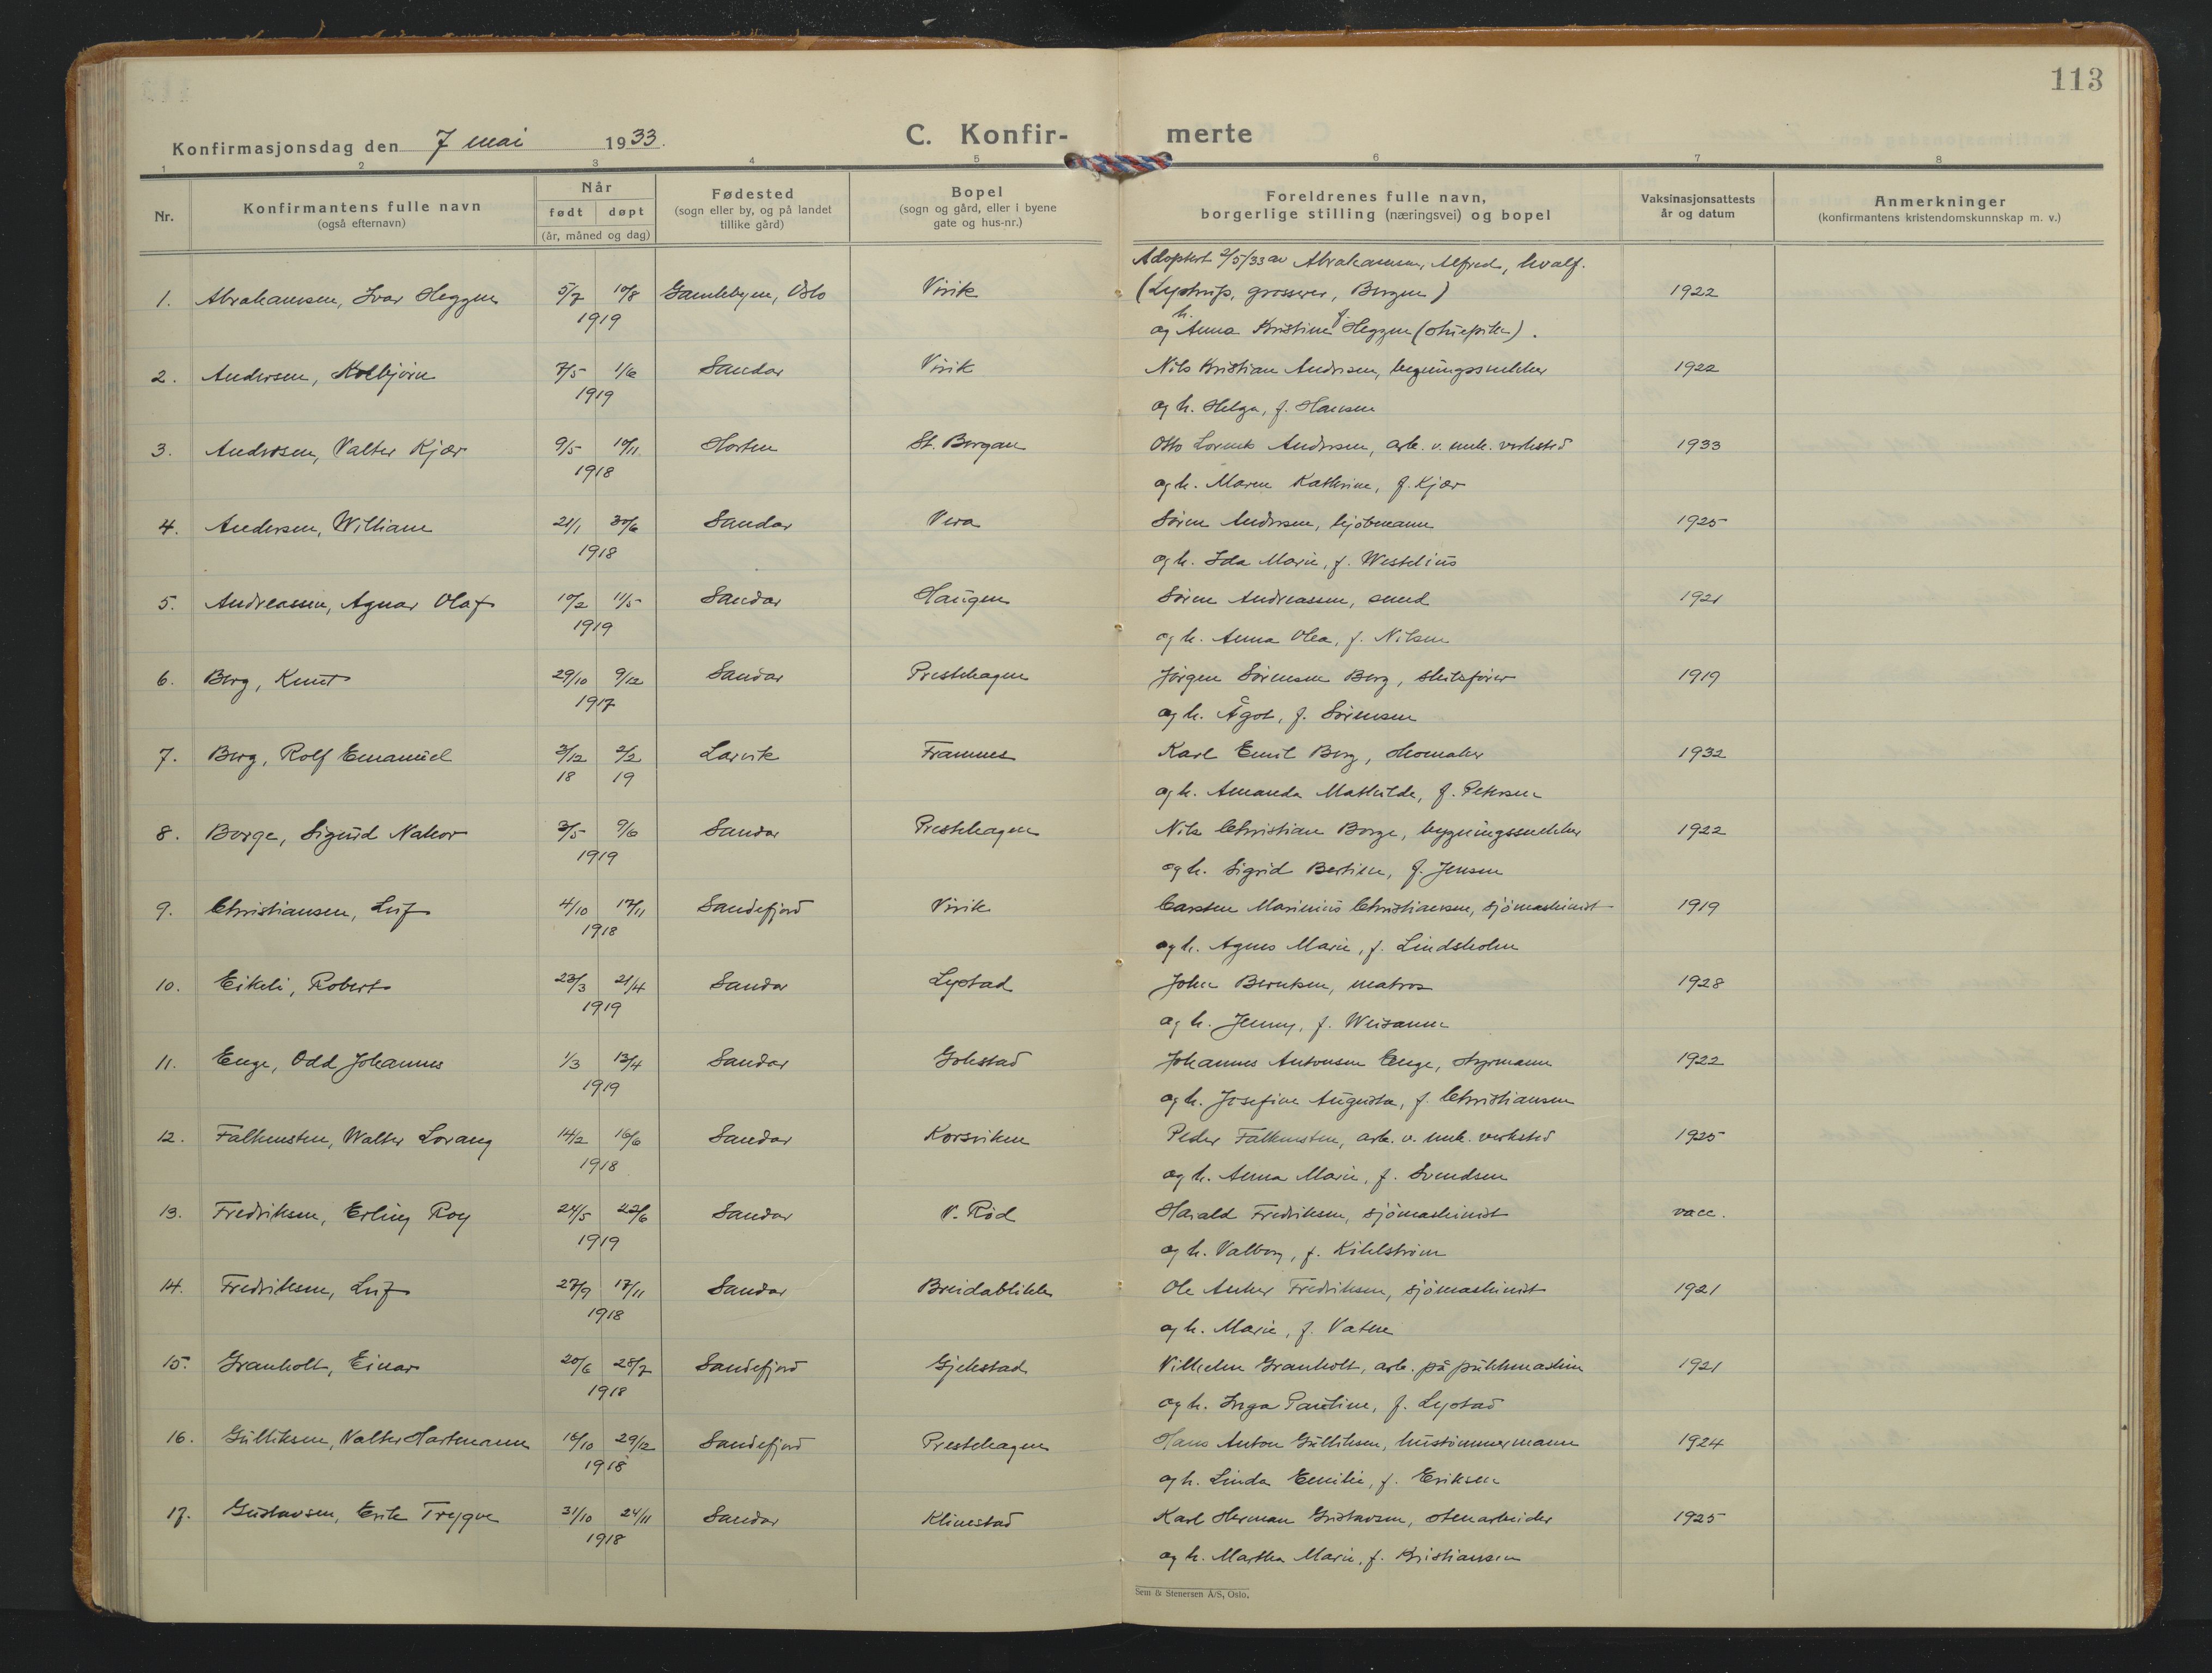 113
Konfirmasjonsdag den 7 mai 1933.
C. Konfir- merte
1 2 3 4 5 6 7 8
Nr.
Konfirmantens fulle navn
(også efternavn)
Når
født døpt
(år, måned og dag)
Fødested
(sogn eller by, og på landet
tillike gård)
Bopel
(sogn og gård, eller i byene
gate og hus-nr.)
Foreldrenes fulle navn,
borgerlige stilling (næringsvei) og bopel
Vaksinasjonsattests
år og datum
Anmerkninger
(konfirmantens kristendomskunnskap m. v.)
Adoptert 2/5/33 av Abrahamsen, Alfred, hvalf.
1. Abrahamsen, Ivar Heggen 5/7 10/8 Gamlebyen, Oslo Virik (Lystrup, grosserer, Bergen) 1922
1919 og h. Anna Kristine f. Heggen (stuepike).
2. Andersen, Kolbjörn 7/5 1/6 Sandar Virik Nils Kristian Andersen, bygningssnekker 1922
1919 og h. Helga, f. Hansen
3. Andersen, Valter Kjær 9/5 10/11 Horten St. Bergan Otto Lorentz Andersen, arb. v. mek. verksted 1933
1918 og h. Maren Kathrine, f. Kjær
4. Andersen, William 21/1 30/6 Sandar Vera Sören Andersen, kjöbmann 1925
1918 og h. Ida Marie, f. Westelius
5. Andreassen, Agnar Olaf 10/2 11/5 Sandar Haugen Sören Andreassen, smed 1921
1919 og h. Anna Olea, f. Nilsen
6. Berg, Knut 29/10 9/12 Sandar Prestehagen Jörgen Sörensen Berg, skibsförer 1919
1917 og h. Ågot, f. Sörensen
7. Berg, Rolf Emanuel 3/12 2/2 Larvik Framnes Karl Emil Berg, skomaker 1932
18 19 og h. Amanda Mathilde, f. Petersen
8. Borge, Sigurd Nakor 3/5 9/6 Sandar Prestehagen Nils Christian Borge, bygningssnekker 1922
1919 og h. Sigrid Bertine, f. Jensen
9. Christiansen, Leif 4/10 17/11 Sandefjord Virik Carsten Marinius Christiansen, sjömaskinist 1919
1918 og h. Agnes Marie, f. Lindsholm
10. Eikeli, Robert 23/3 21/4 Sandar Lystad John Berntsen, matros 1928
1919 og h. Jenny, f. Weisann
11. Enge, Odd Johannes 1/3 13/4 Sandar Gokstad Johannes Antonsen Enge, styrmann 1922
1919 og h. Josefine Augusta, f. Christiansen
12. Falkensten, Walter Lorang 14/2 16/6 Sandar Korsviken Peder Falkensten, arb. v. mek. verksted 1925
1918 og h. Anna Marie, f. Svendsen
13. Fredriksen, Erling Roy 24/5 22/6 Sandar V. Röd Harald Fredriksen, sjömaskinist vacc.
1919 og h. Valborg, f. Kihlström
14. Fredriksen, Leif 27/9 17/11 Sandar Breidablikk Ole Anker Fredriksen, sjömaskinist 1921
1918 og h. Marie, f. Vatne
15. Granholt, Einar 20/6 28/7 Sandefjord Gjekstad Vilhelm Granholt, arb. på pukkmaskin 1921
1918 og h. Inga Pauline, f. Lystad
16. Gulliksen, Valter Hartmann 18/10 29/12 Sandefjord Prestehagen Hans Anton Gulliksen, hustömmermann 1924
1918 og h. Linda Emilie, f. Eriksen
17. Gustavsen, Erik Trygve 31/10 24/11 Sandar Klinestad Karl Herman Gustavsen, stenarbeider 1925
1918 og h. Martha Marie, f. Kristiansen
Sem & Stenersen A/S, Oslo.